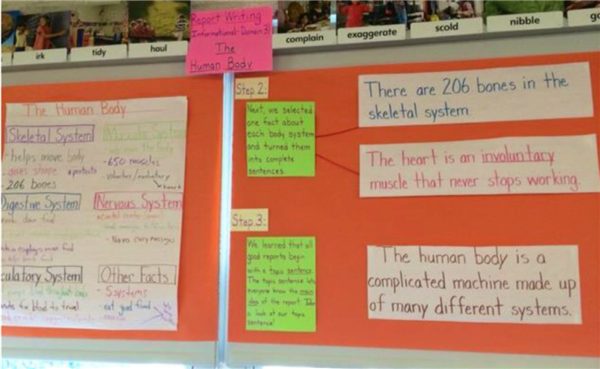 irk
tidy
haul
complain
exaggerate
scold
nibble
Report Writing
Informational- Domain 3:
The
Human Body
The Human Body
Skeletal System
- helps move body
- gives shape
• protects
206 bones
Muscular System
- 650 muscles
- voluntary/involuntary
Digestive System
Nervous System
- Nerves carry messages
culatory System
Other Facts
- 5 systems
- eat good food
Step 2:
Next, we selected
one fact about
each body system
and turned them
into complete
sentences.
There are 206 bones in the
skeletal system.
The heart is an involuntary
muscle that never stops working.
Step 3:
We learned that all
good reports begin
with a topic sentence.
The topic sentence lets
everyone know the main
idea of the report. Take
a look at our topic
sentence!
The human body is a
complicated machine made up
of many different systems.